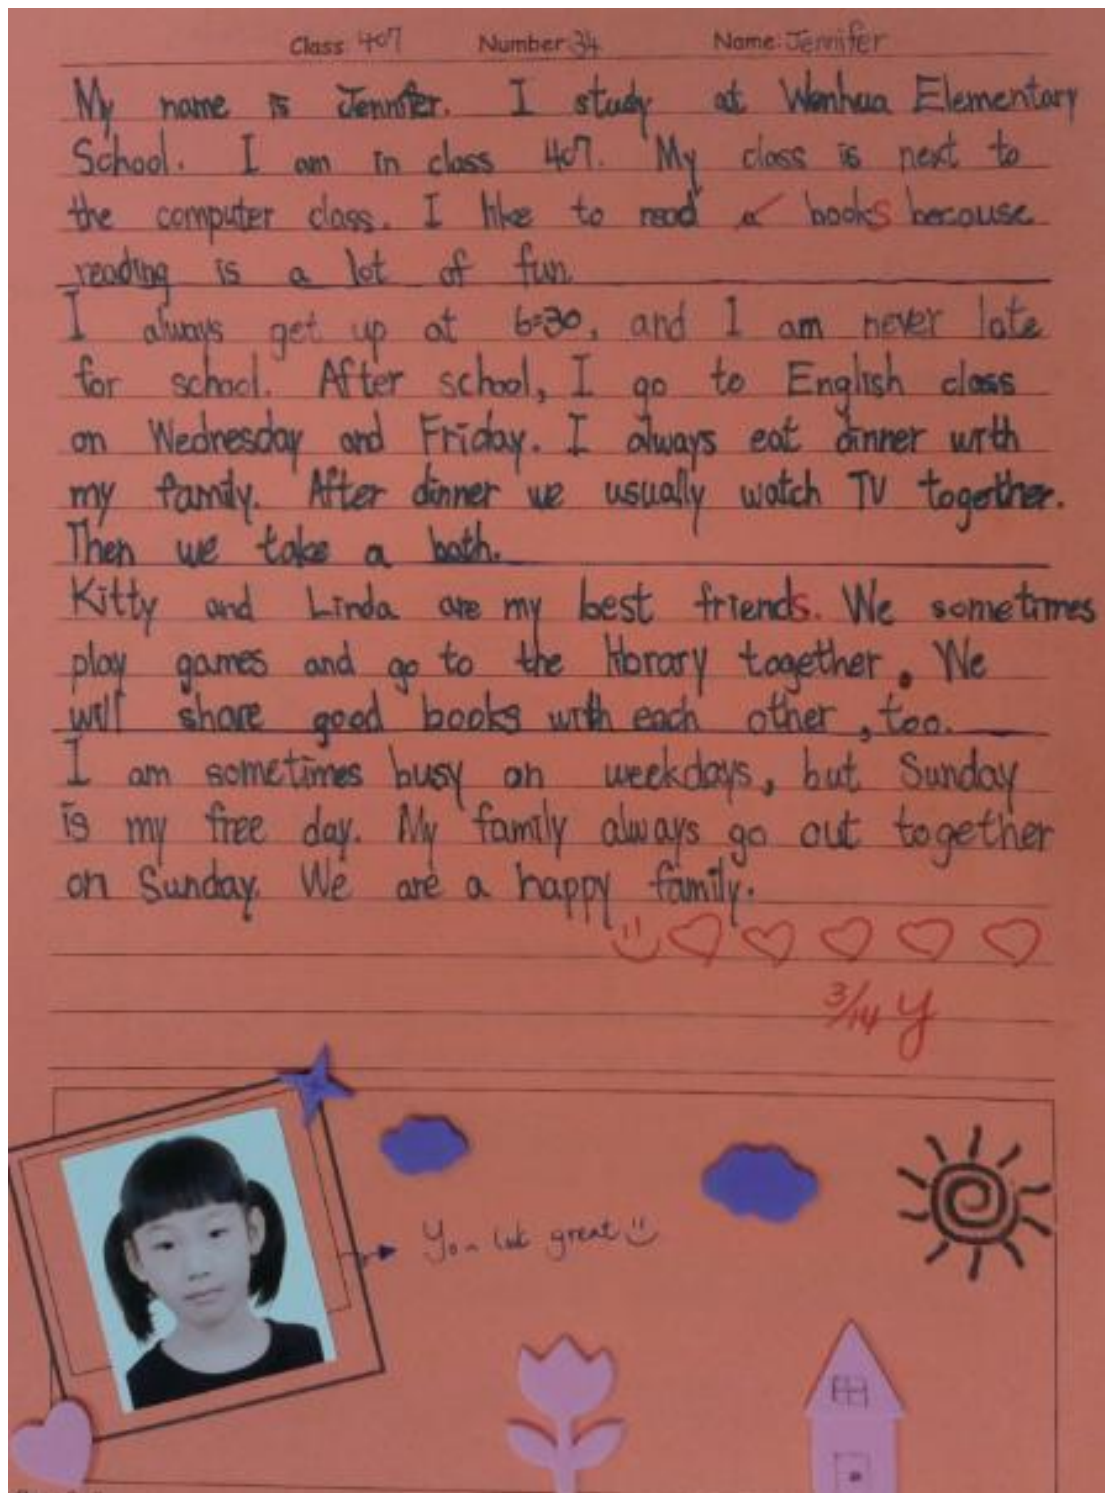 Class 407 Number 34 Name: Jennifer
My name is Jennifer. I study at Wenhua Elementary
School. I am in class 407. My class is next to
the computer class. I like to read a books because
reading is a lot of fun
I always get up at 6:30, and I am never late
for school. After school, I go to English class
on Wednesday and Friday. I always eat dinner with
my family. After dinner we usually watch TV together.
Then we take a bath.
Kitty and Linda are my best friends. We sometimes
play games and go to the library together. We
will share good books with each other, too.
I am sometimes busy on weekdays, but Sunday
is my free day. My family always go out together
on Sunday. We are a happy family.
3/14 y
You look great